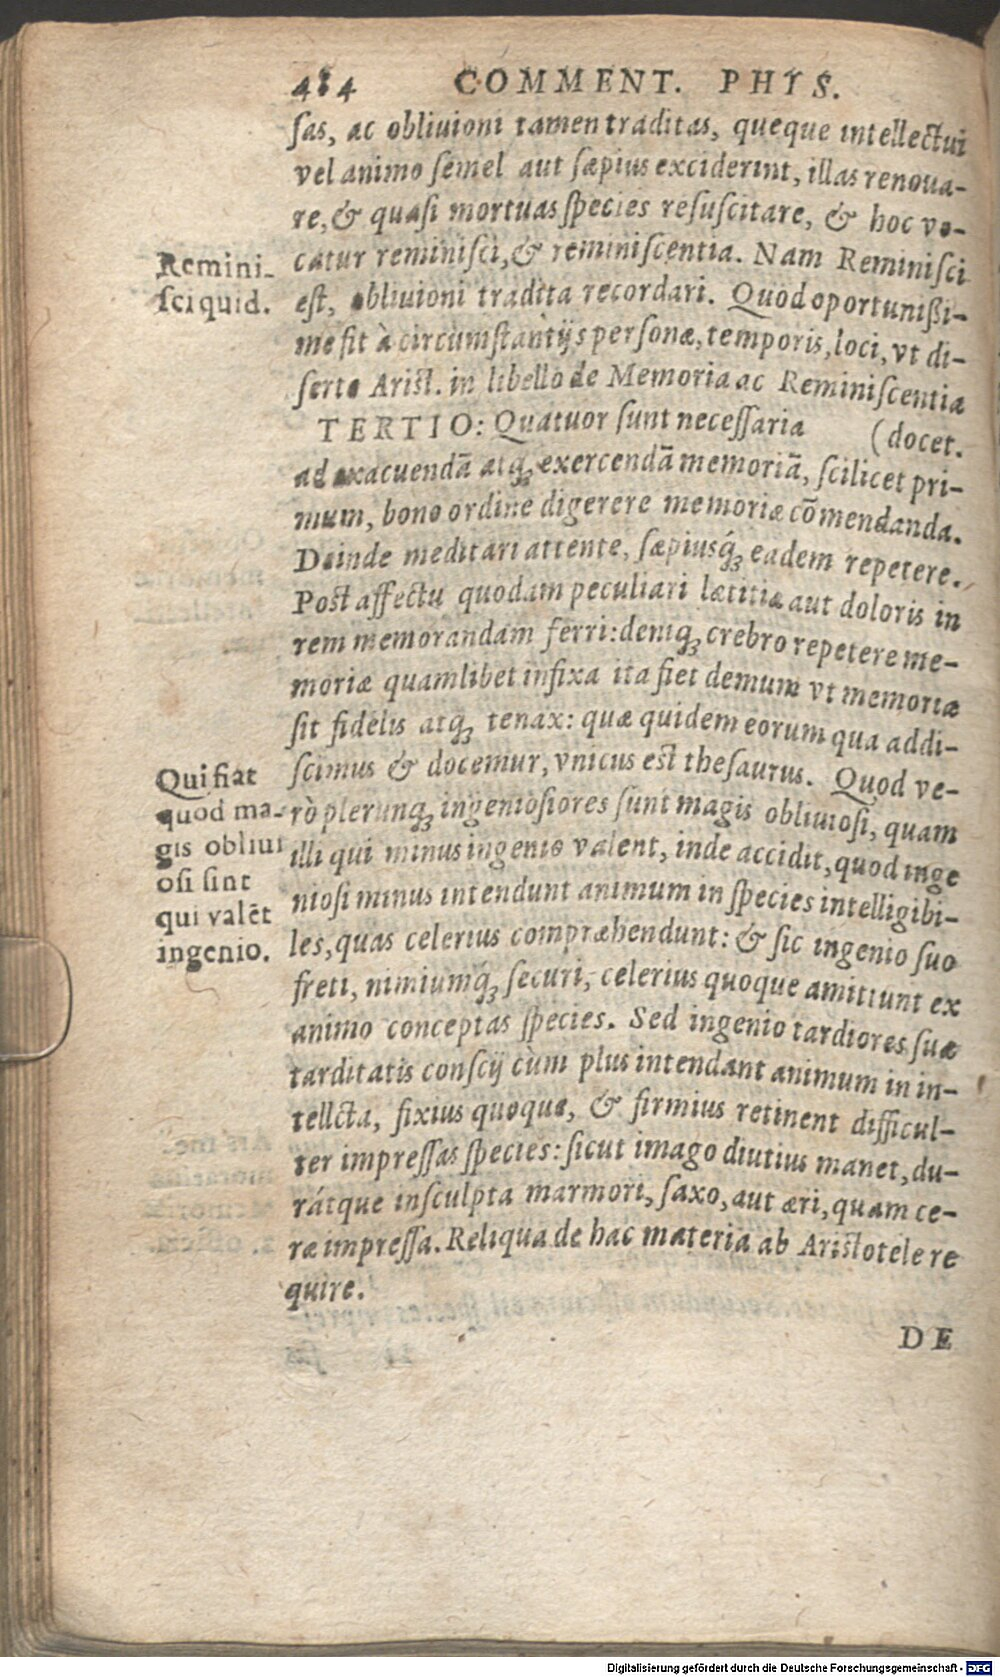 484 COMMENT. PHYS.
sas, ac obliuioni tamen traditas, queque intellectui
vel animo semel aut sæpius exciderint, illas renoua-
re, & quasi mortuas species resuscitare, & hoc vo-
catur reminisci, & reminiscentia. Nam Reminisci
est, obliuioni tradita recordari. Quod oportunißi-
me fit à circumstantijs personæ, temporis, loci, vt di-
serte Arist. in libello de Memoria ac Reminiscentia
TERTIO: Quatuor sunt necessaria (docet.
ad exacuendā atq; exercendā memoriā, scilicet pri-
mum, bono ordine digerere memoriæ cōmendanda.
Deinde meditari attente, sæpiusq́; eadem repetere.
Post affectu quodam peculiari lætitiæ aut doloris in
rem memorandam ferri: deniq; crebro repetere me-
moriæ quamlibet infixa ita fiet demum vt memoria
sit fidelis atq; tenax: quæ quidem eorum qua addi-
scimus & docemur, vnicus est thesaurus. Quod ve-
rò plerunq; ingeniosiores sunt magis obliuiosi, quam
illi qui minus ingenio valent, inde accidit, quod inge
niosi minus intendunt animum in species intelligibi-
les, quas celerius compræhendunt: & sic ingenio suo
freti, nimiumq́; securi, celerius quoque amittunt ex
animo conceptas species. Sed ingenio tardiores suæ
tarditatis conscij cùm plus intendant animum in in-
tellcta, fixius quoque, & firmius retinent difficul-
ter impressas species: sicut imago diutius manet, du-
rátque insculpta marmori, saxo, aut æri, quam ce-
ræ impressa. Reliqua de hac materia ab Aristotele re
quire.
DE
Remini-
sci quid.
Qui fiat
quod ma-
gis obliui
osi sint
qui valēt
ingenio.
Digitalisierung gefördert durch die Deutsche Forschungsgemeinschaft - DFG